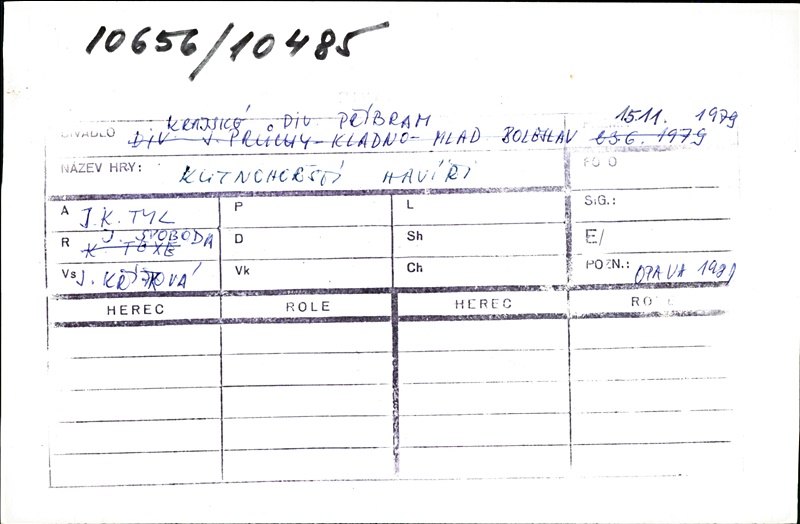 10656/10485
KRAJSKÉ DIV PŘÍBRAM 15.11. 1979
DIVADLO DIV. J. PRŮCHY - KLADNO - MLAD BOLESLAV 23.6. 1979
NÁZEV HRY: KUTNOHORŠTÍ HAVÍŘI FOTO
A J.K. TYL P L SIG.:
J. SVOBODA
R K. TEXE D Sh E/
Vs J. KŘÍŽKOVÁ Vk Ch POZN.: OPAVA 1980
HEREC ROLE HEREC ROLE